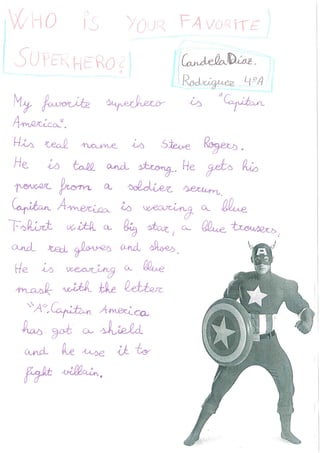 WHO IS YOUR FAVORITE
SUPERHERO?
Candela Díaz.
Rodríguez 4ºA
My favorite superhero is "Capitan
America".
His real name is Steve Rogers.
He is tall and strong. He gets his
power from a soldier serum.
Capitan America is wearing a blue
T-shirt with a big star, a blue trousers,
and red gloves and shoes.
He is wearing a blue
mask with the letter
"A". Capitan America
has got a shield
and he use it to
fight villain.